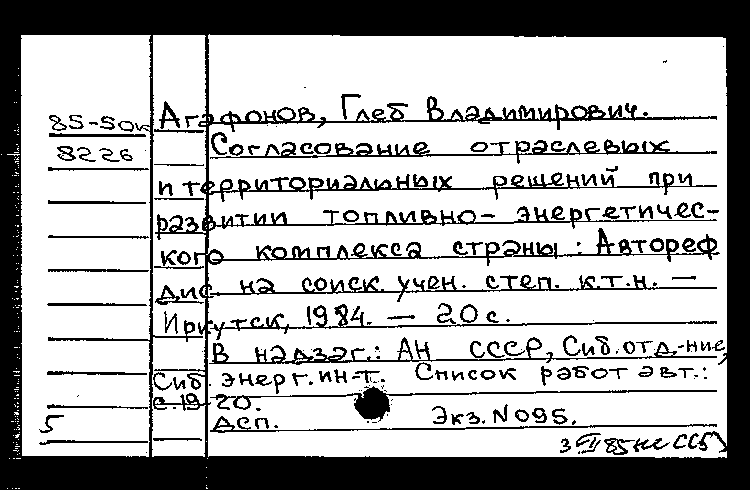 85-5ок
8226
Агафонов, Глеб Владимирович.
Согласование отраслевых
и территориальных решений при
развитии топливно- энергетичес-
кого комплекса страны : Автореф
дис. на соиск. учен. степ. к.т.н. —
Иркутск, 1984. — 20 с.
В надзаг.: АН СССР, Сиб. отд.-ние,
Сиб. энерг. ин-т. Список работ авт.:
с. 19-20.
5 Дсп. Экз. N 095.